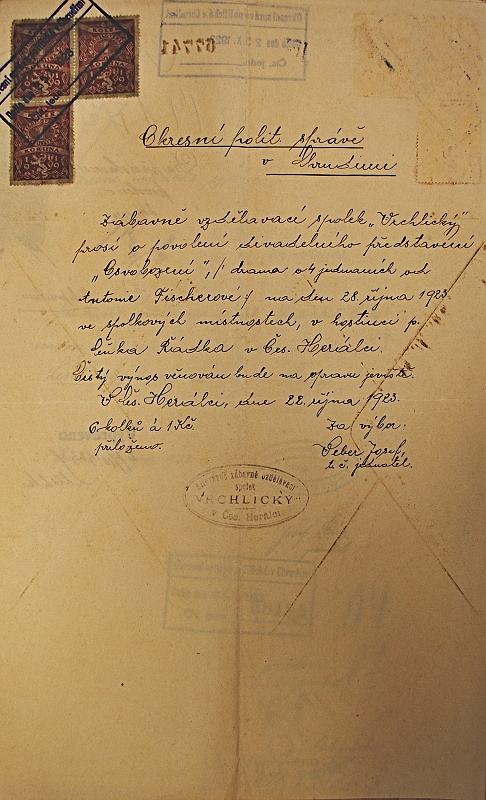 KOLEK
KORUNA
KOLEK
KORUNA
KORUNA
67741
Okresní polit. správě
v Chrudimi
Zábavně vzdělavací spolek „Vrchlický"
prosí o povolení divadelního představení
„Osvobození", /: drama o 4 jednaních od
Antonie Fischerové :/ na den 28. října 1923
ve spolkových místnostech, v hostinci p.
Čeňka Řádka v Čes. Herálci.
Čistý výnos věnován bude na opravu jeviště.
V Čes. Herálci, dne 22. října 1923.
6 kolků á 1 Kč.
přiloženo.
Za výbor:
Weber Josef,
t. č. jednatel.
zábavně vzdělávací
spolek
„VRCHLICKÝ"
v Čes. Herálci